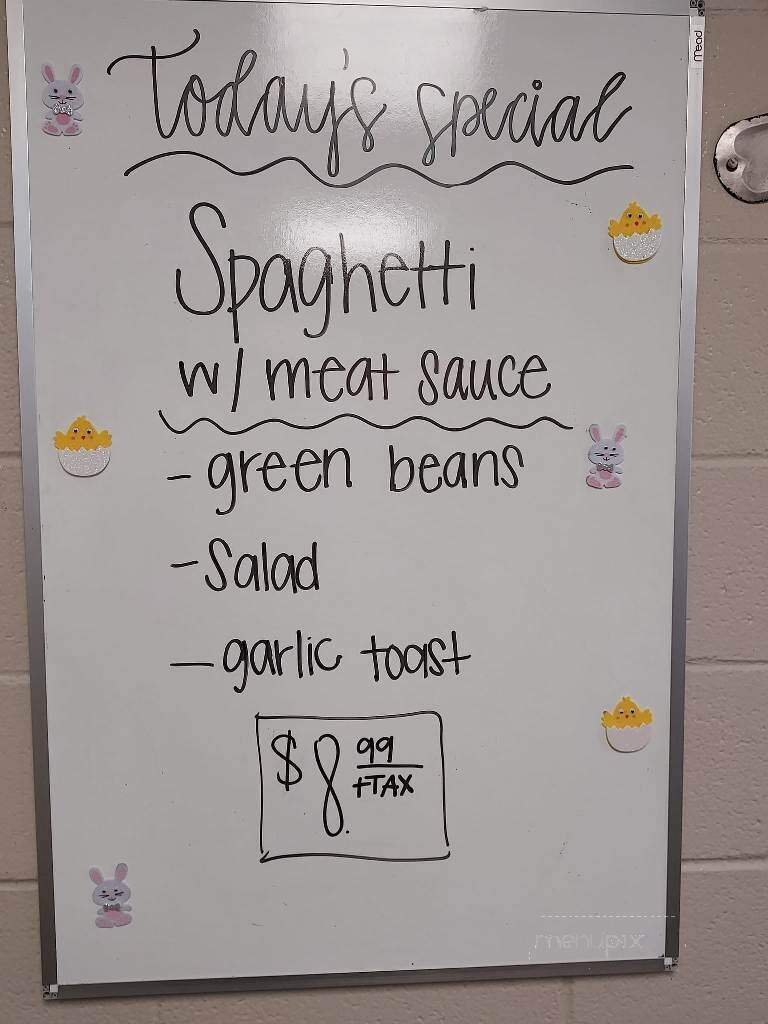 Today's special
Spaghetti
w/ meat sauce
- green beans
- Salad
- garlic toast
$8.99
+TAX
Mead
menupix